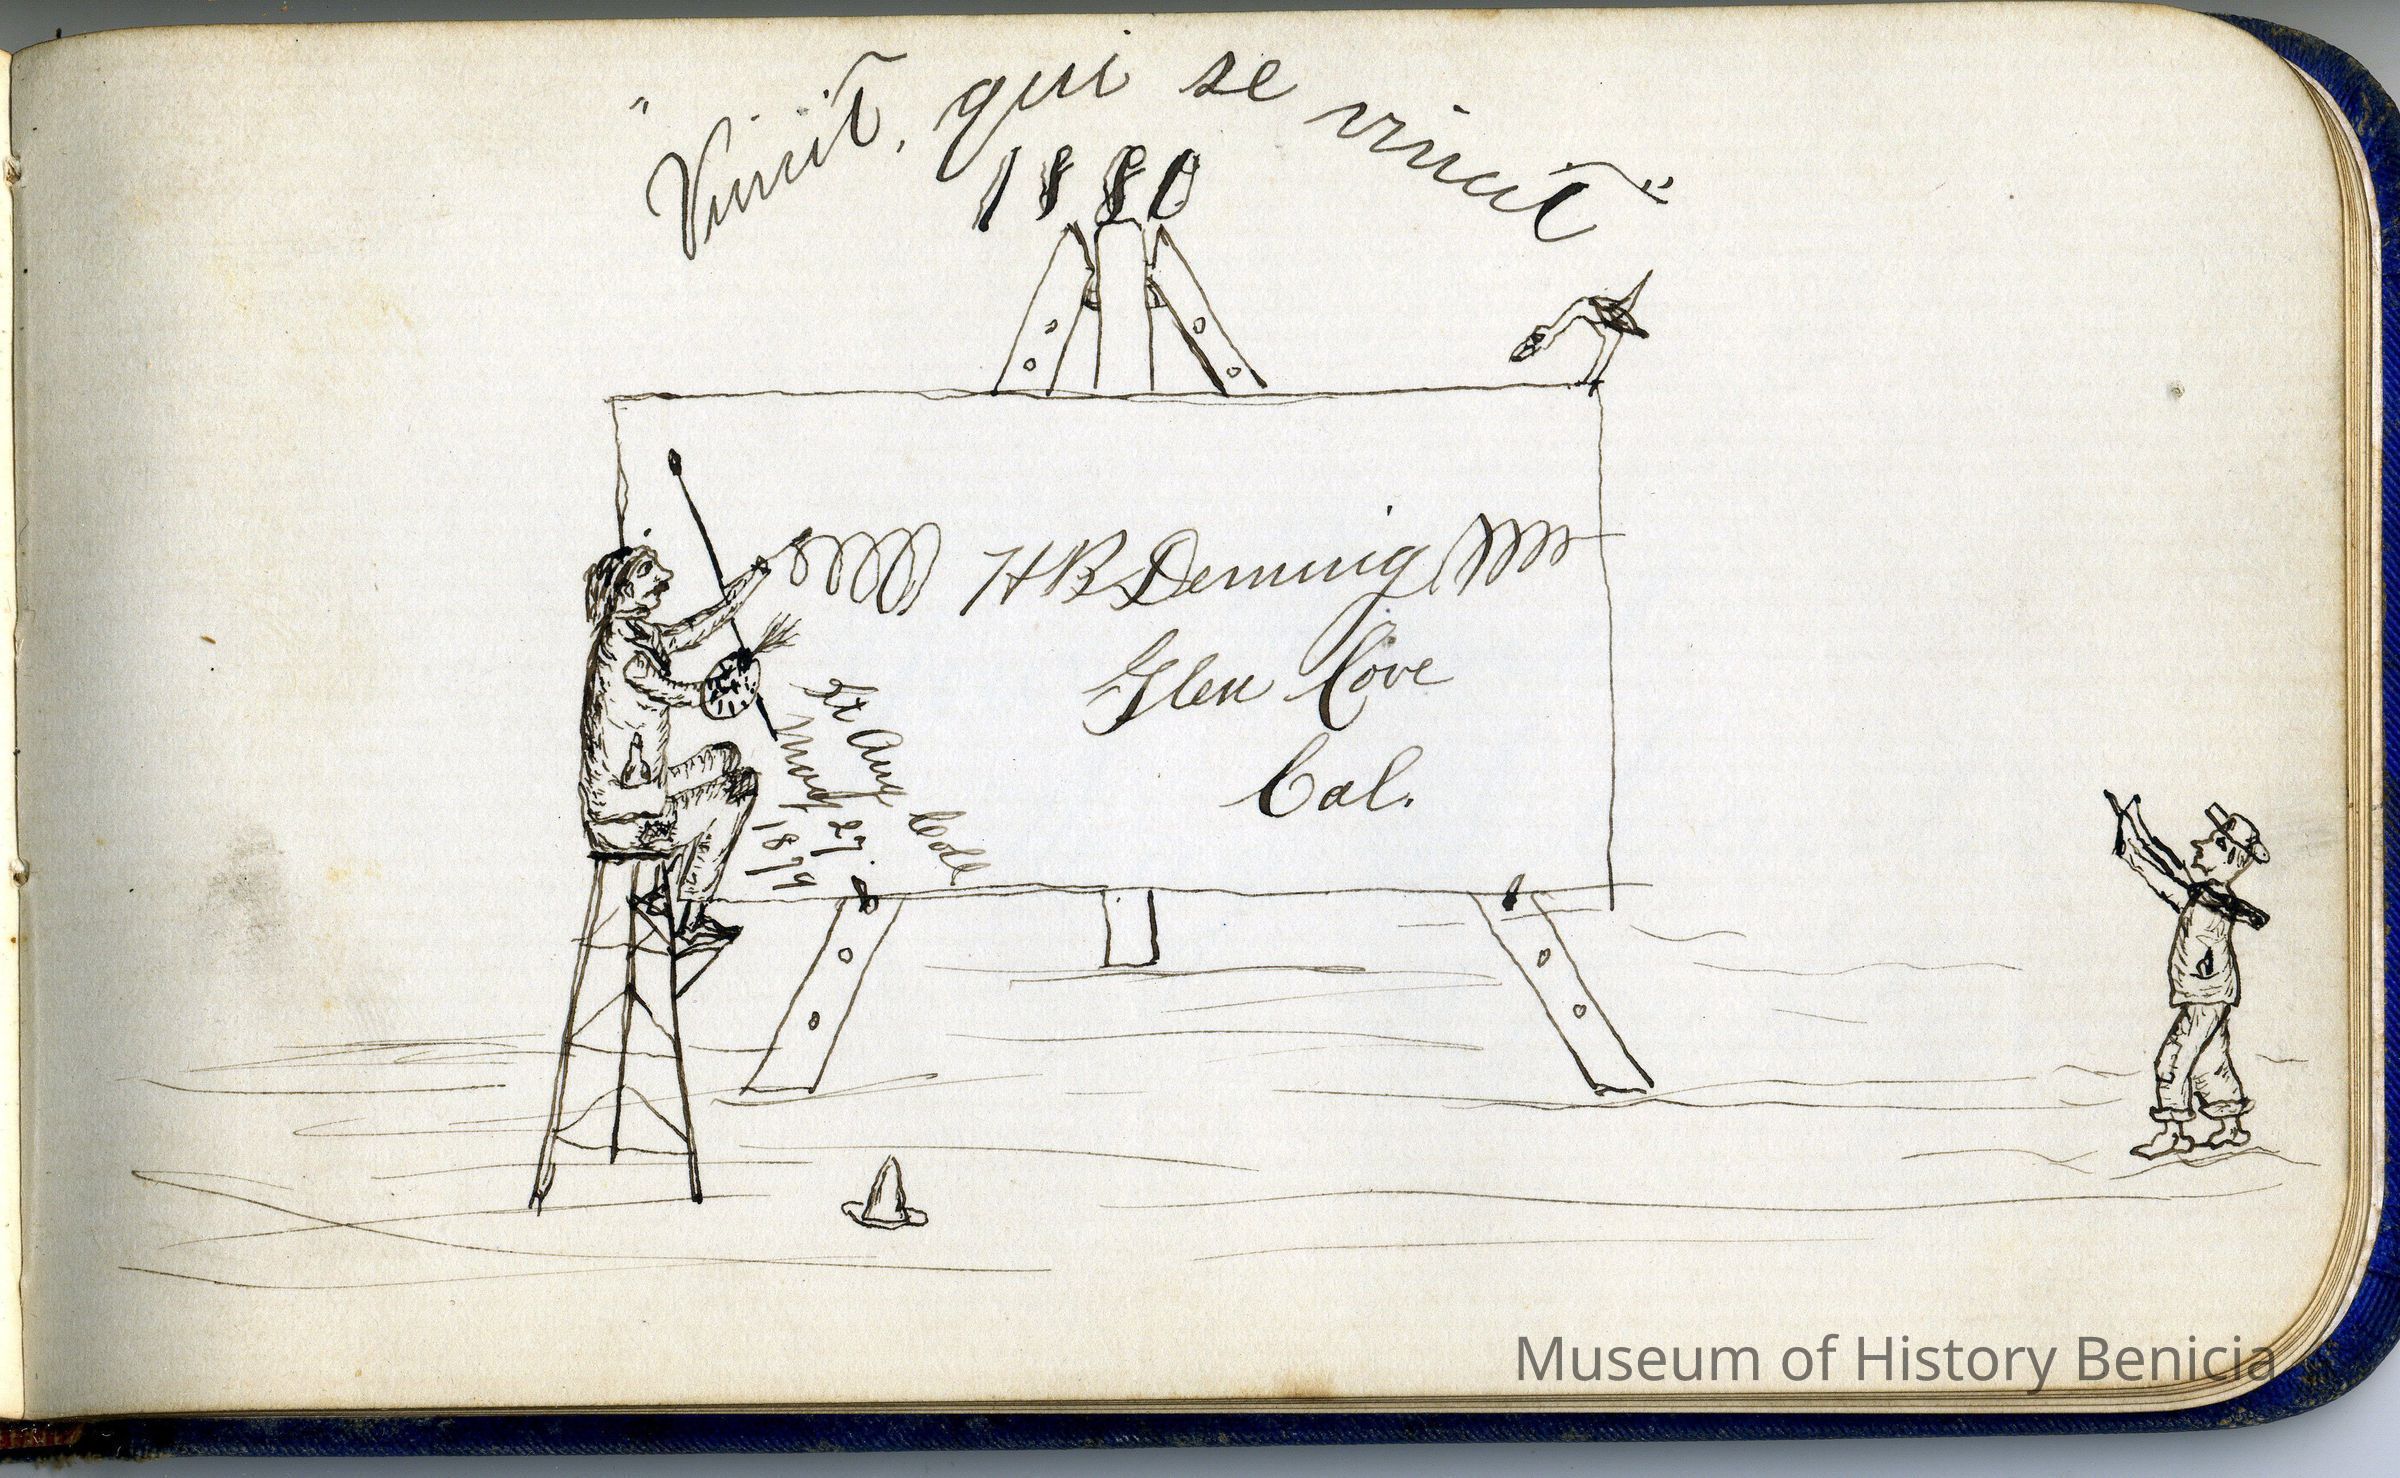 "Vincit, qui se vincit"
1880
H B Deming
Glen Cove
Cal.
St Aug Coll
May 27.
1879
Museum of History Benicia